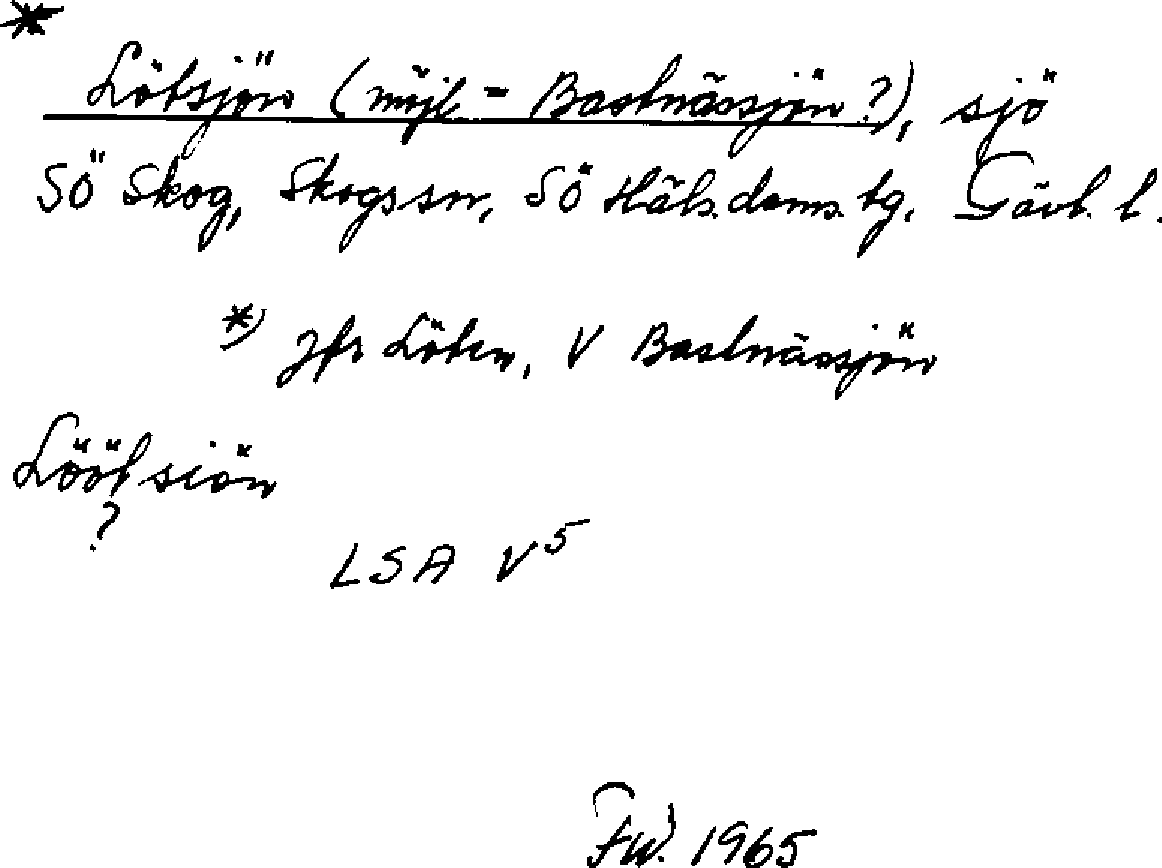 *
Lötsjön (möjl = Bastnässjön?), sjö
SÖ Skog, Skogs sn, SÖ Häls. doms. tg. Gävl. l.
*) Jfr Löten, V Bastnässjön
Lööt siön
?
LSA V5
Fw. 1965